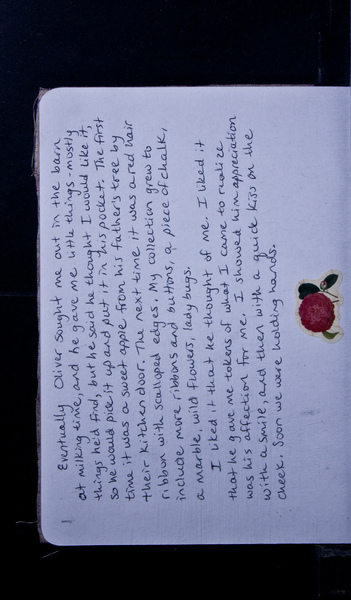 Eventually Oliver sought me out in the barn
at milking time, and he gave me little things - mostly
things he'd find, but he said he thought I would like it,
so he would pick it up and put it in his pocket. The first
time it was a sweet apple from his father's tree by
their kitchen door. The next time it was a red hair
ribbon with scalloped edges. My collection grew to
include more ribbons and buttons, a piece of chalk,
a marble, wild flowers, lady bugs.
I liked it that he thought of me. I liked it
that he gave me tokens of what I came to realize
was his affection for me. I showed him appreciation
with a smile, and then with a quick kiss on the
cheek. Soon we were holding hands.